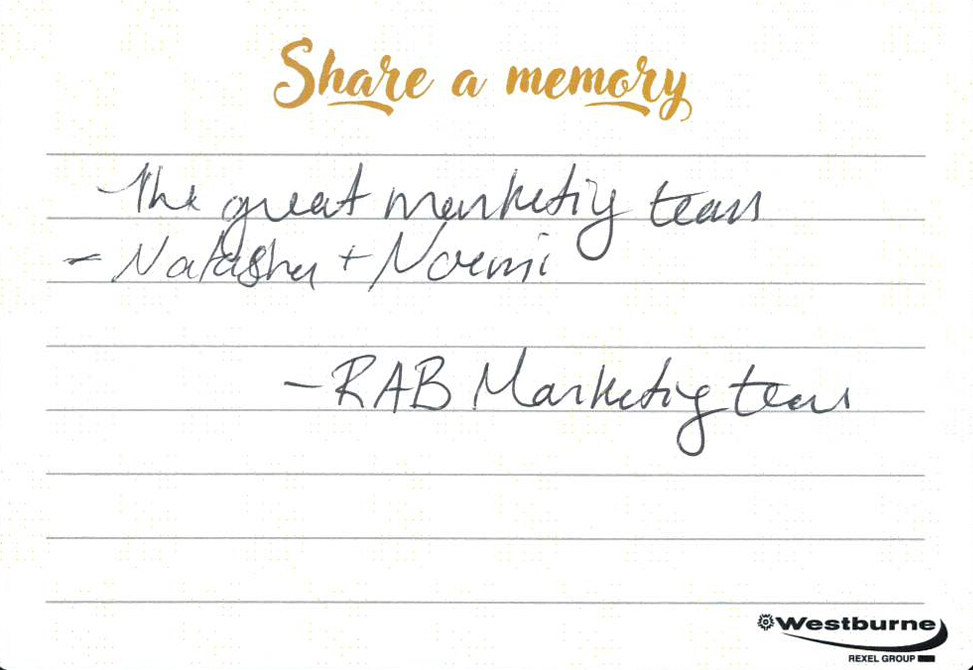 Share a memory
The great marketing team
- Natasha + Noemi
- RAB Marketing team
Westburne
REXEL GROUP